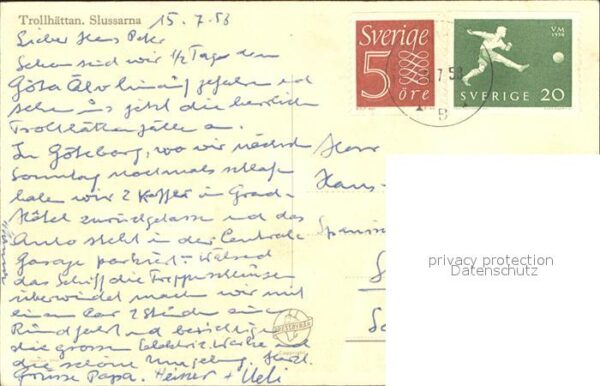 Trollhättan. Slussarna
15.7.58
Lieber Hans Peter
Schon sind wir 1/2 Tag den
Göta Älv hinauf gefahren und
sehen uns jetzt die herrlichen
Trollhättenfälle an.
In Göteborg, wo wir nächsten
Sonntag nochmals schlafen
haben wir 2 Koffer im Grand-
Hôtel zurückgelassen und das
Auto steht in der Centrale
Garage parkiert. Während
das Schiff die Treppenschleusen
überwindet machen wir mit
einem Car 2 Stunden eine
Rundfahrt und besichtigen
die grossen Elektriz. Werke und
die schöne Umgebung. Herzl.
Grüsse Papa. Heiner + Ueli
Sverige
5
öre
VM
1958
SVERIGE 20
7.58
B
Herr
Hans-
Spanisch
privacy protection
Datenschutz
Copyright